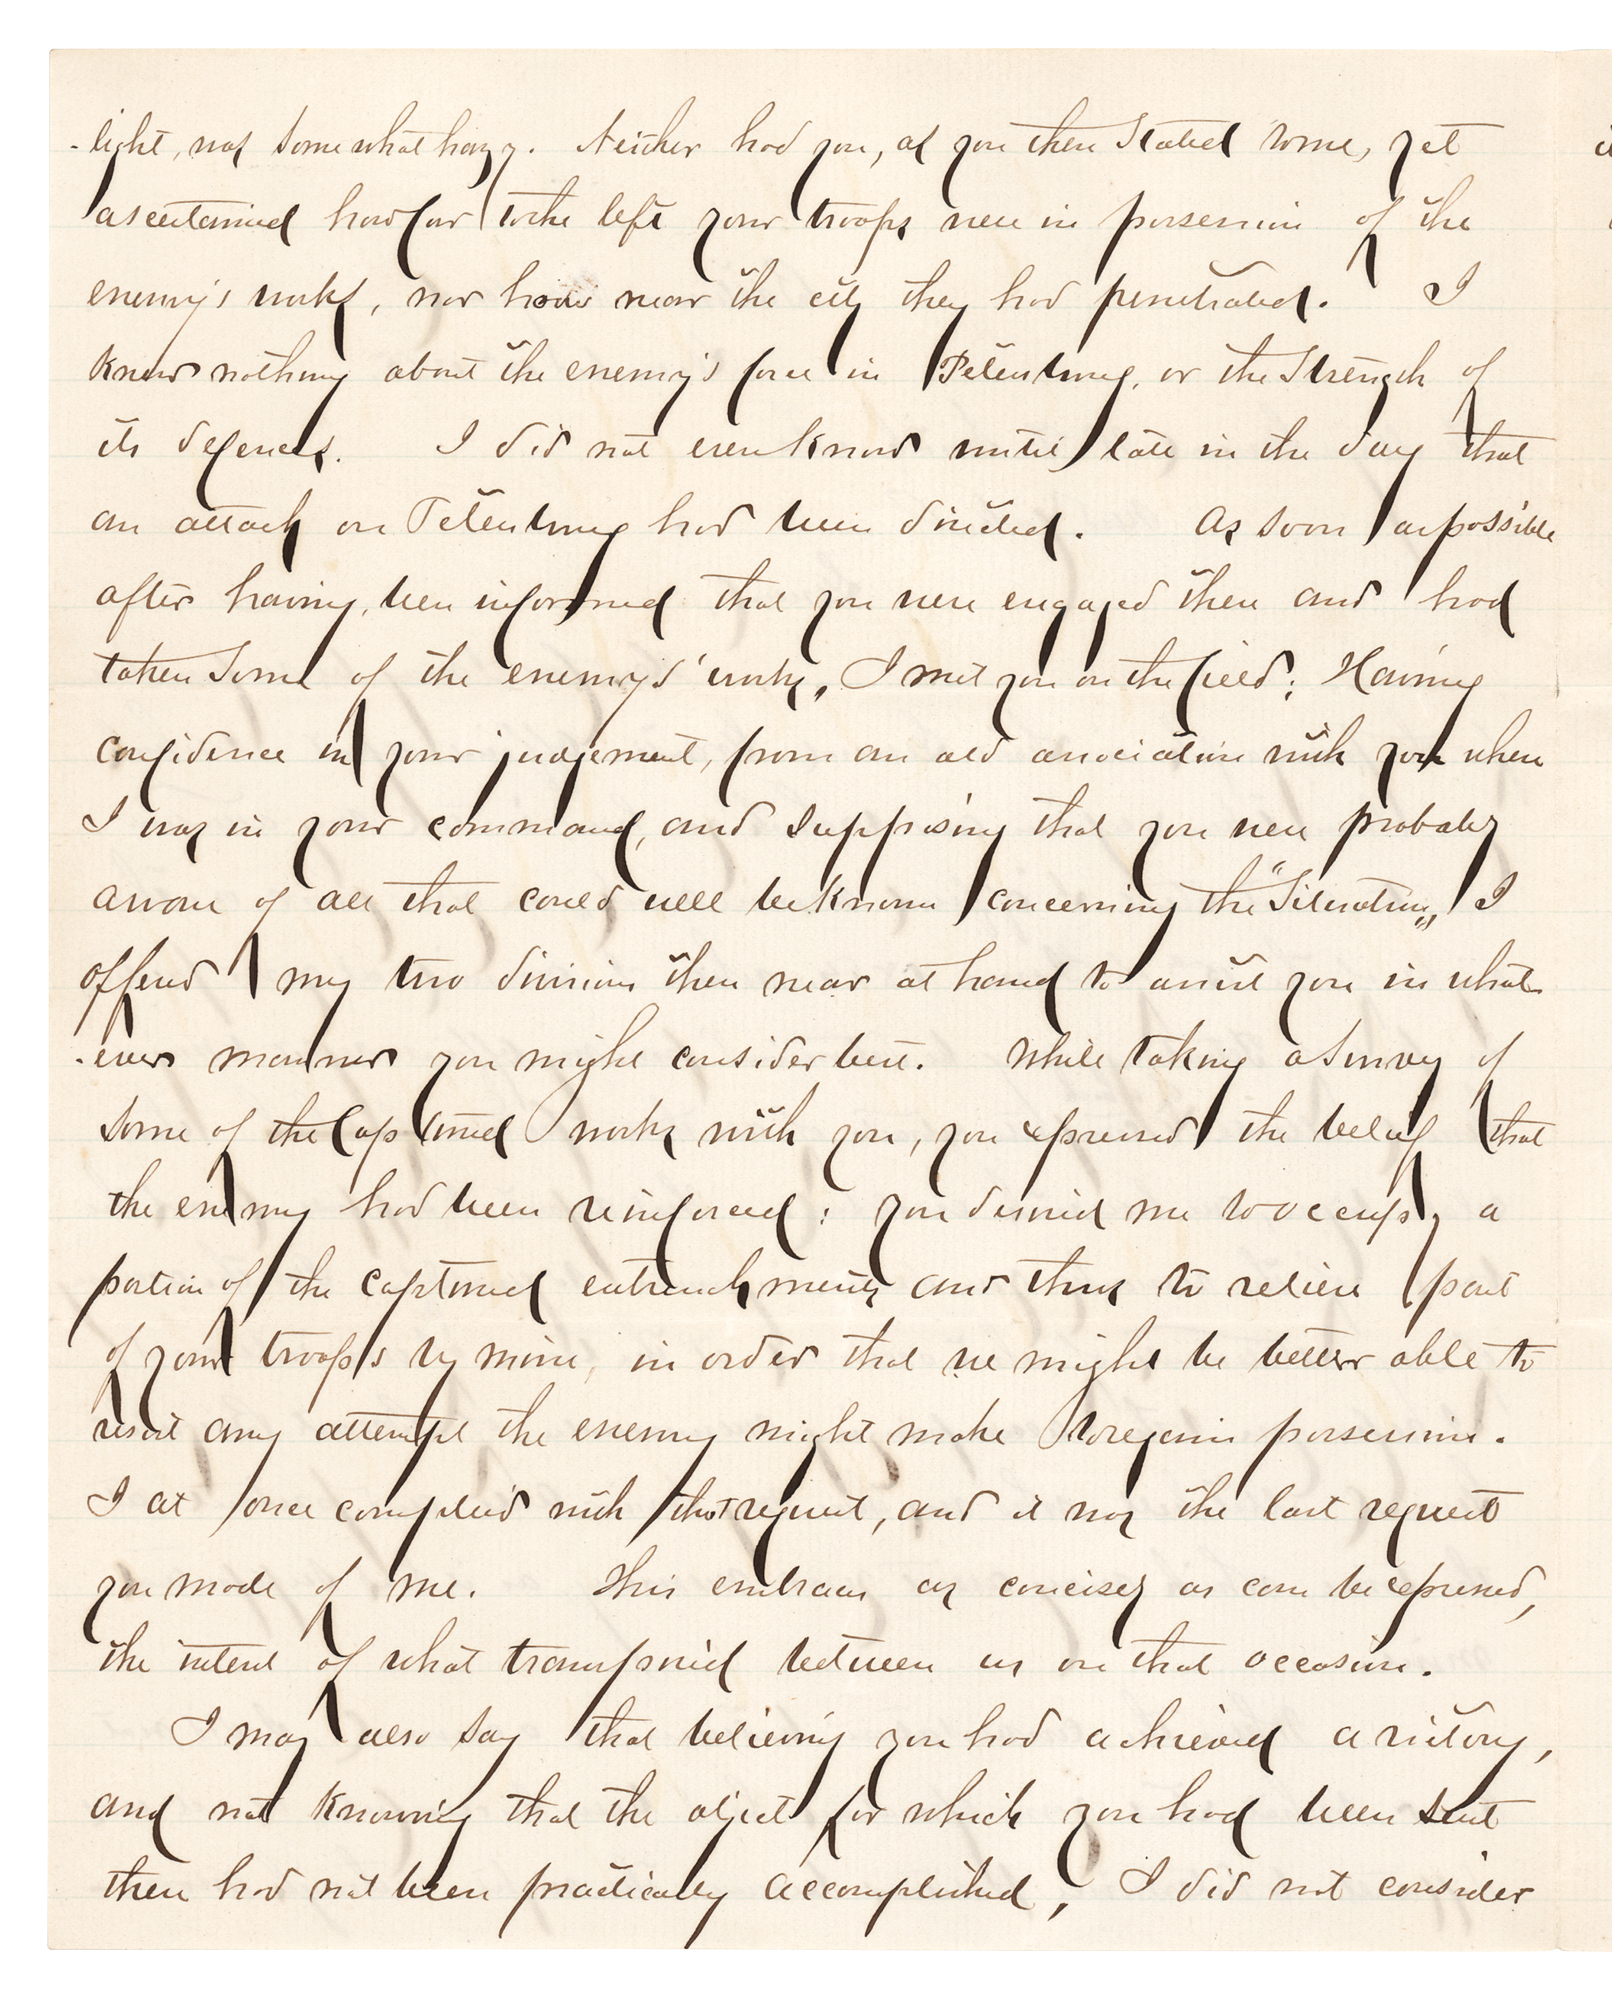 -light, was somewhat hazy. Neither had you, as you then stated to me, yet
ascertained how far to the left your troops were in possession of the
enemy's works, nor how near the city they had penetrated. I
knew nothing about the enemy's force in Petersburg, or the strength of
its defences. I did not even know until late in the day that
an attack on Petersburg had been directed. As soon as possible
after having been informed that you were engaged there and had
taken some of the enemys' works, I met you on the field; Having
confidence in your judgement, from an old association with you when
I was in your command, and supposing that you were probably
aware of all that could well be known concerning the "Situation", I
offered my two divisions then near at hand to assist you in what-
-ever manner you might consider best. While taking a survey of
some of the captured works with you, you expressed the belief that
the enemy had been reinforced; you desired me to occupy a
portion of the captured entrenchments and thus to relieve part
of your troops by mine, in order that we might be better able to
resist any attempt the enemy might make to regain possession.
I at once complied with that request, and it was the last request
you made of me. This embraces as concisely as can be expressed,
the intent of what transpired between us on that occasion.
I may also say that believing you had achieved a victory,
and not knowing that the object for which you had been sent
there had not been practically accomplished, I did not consider